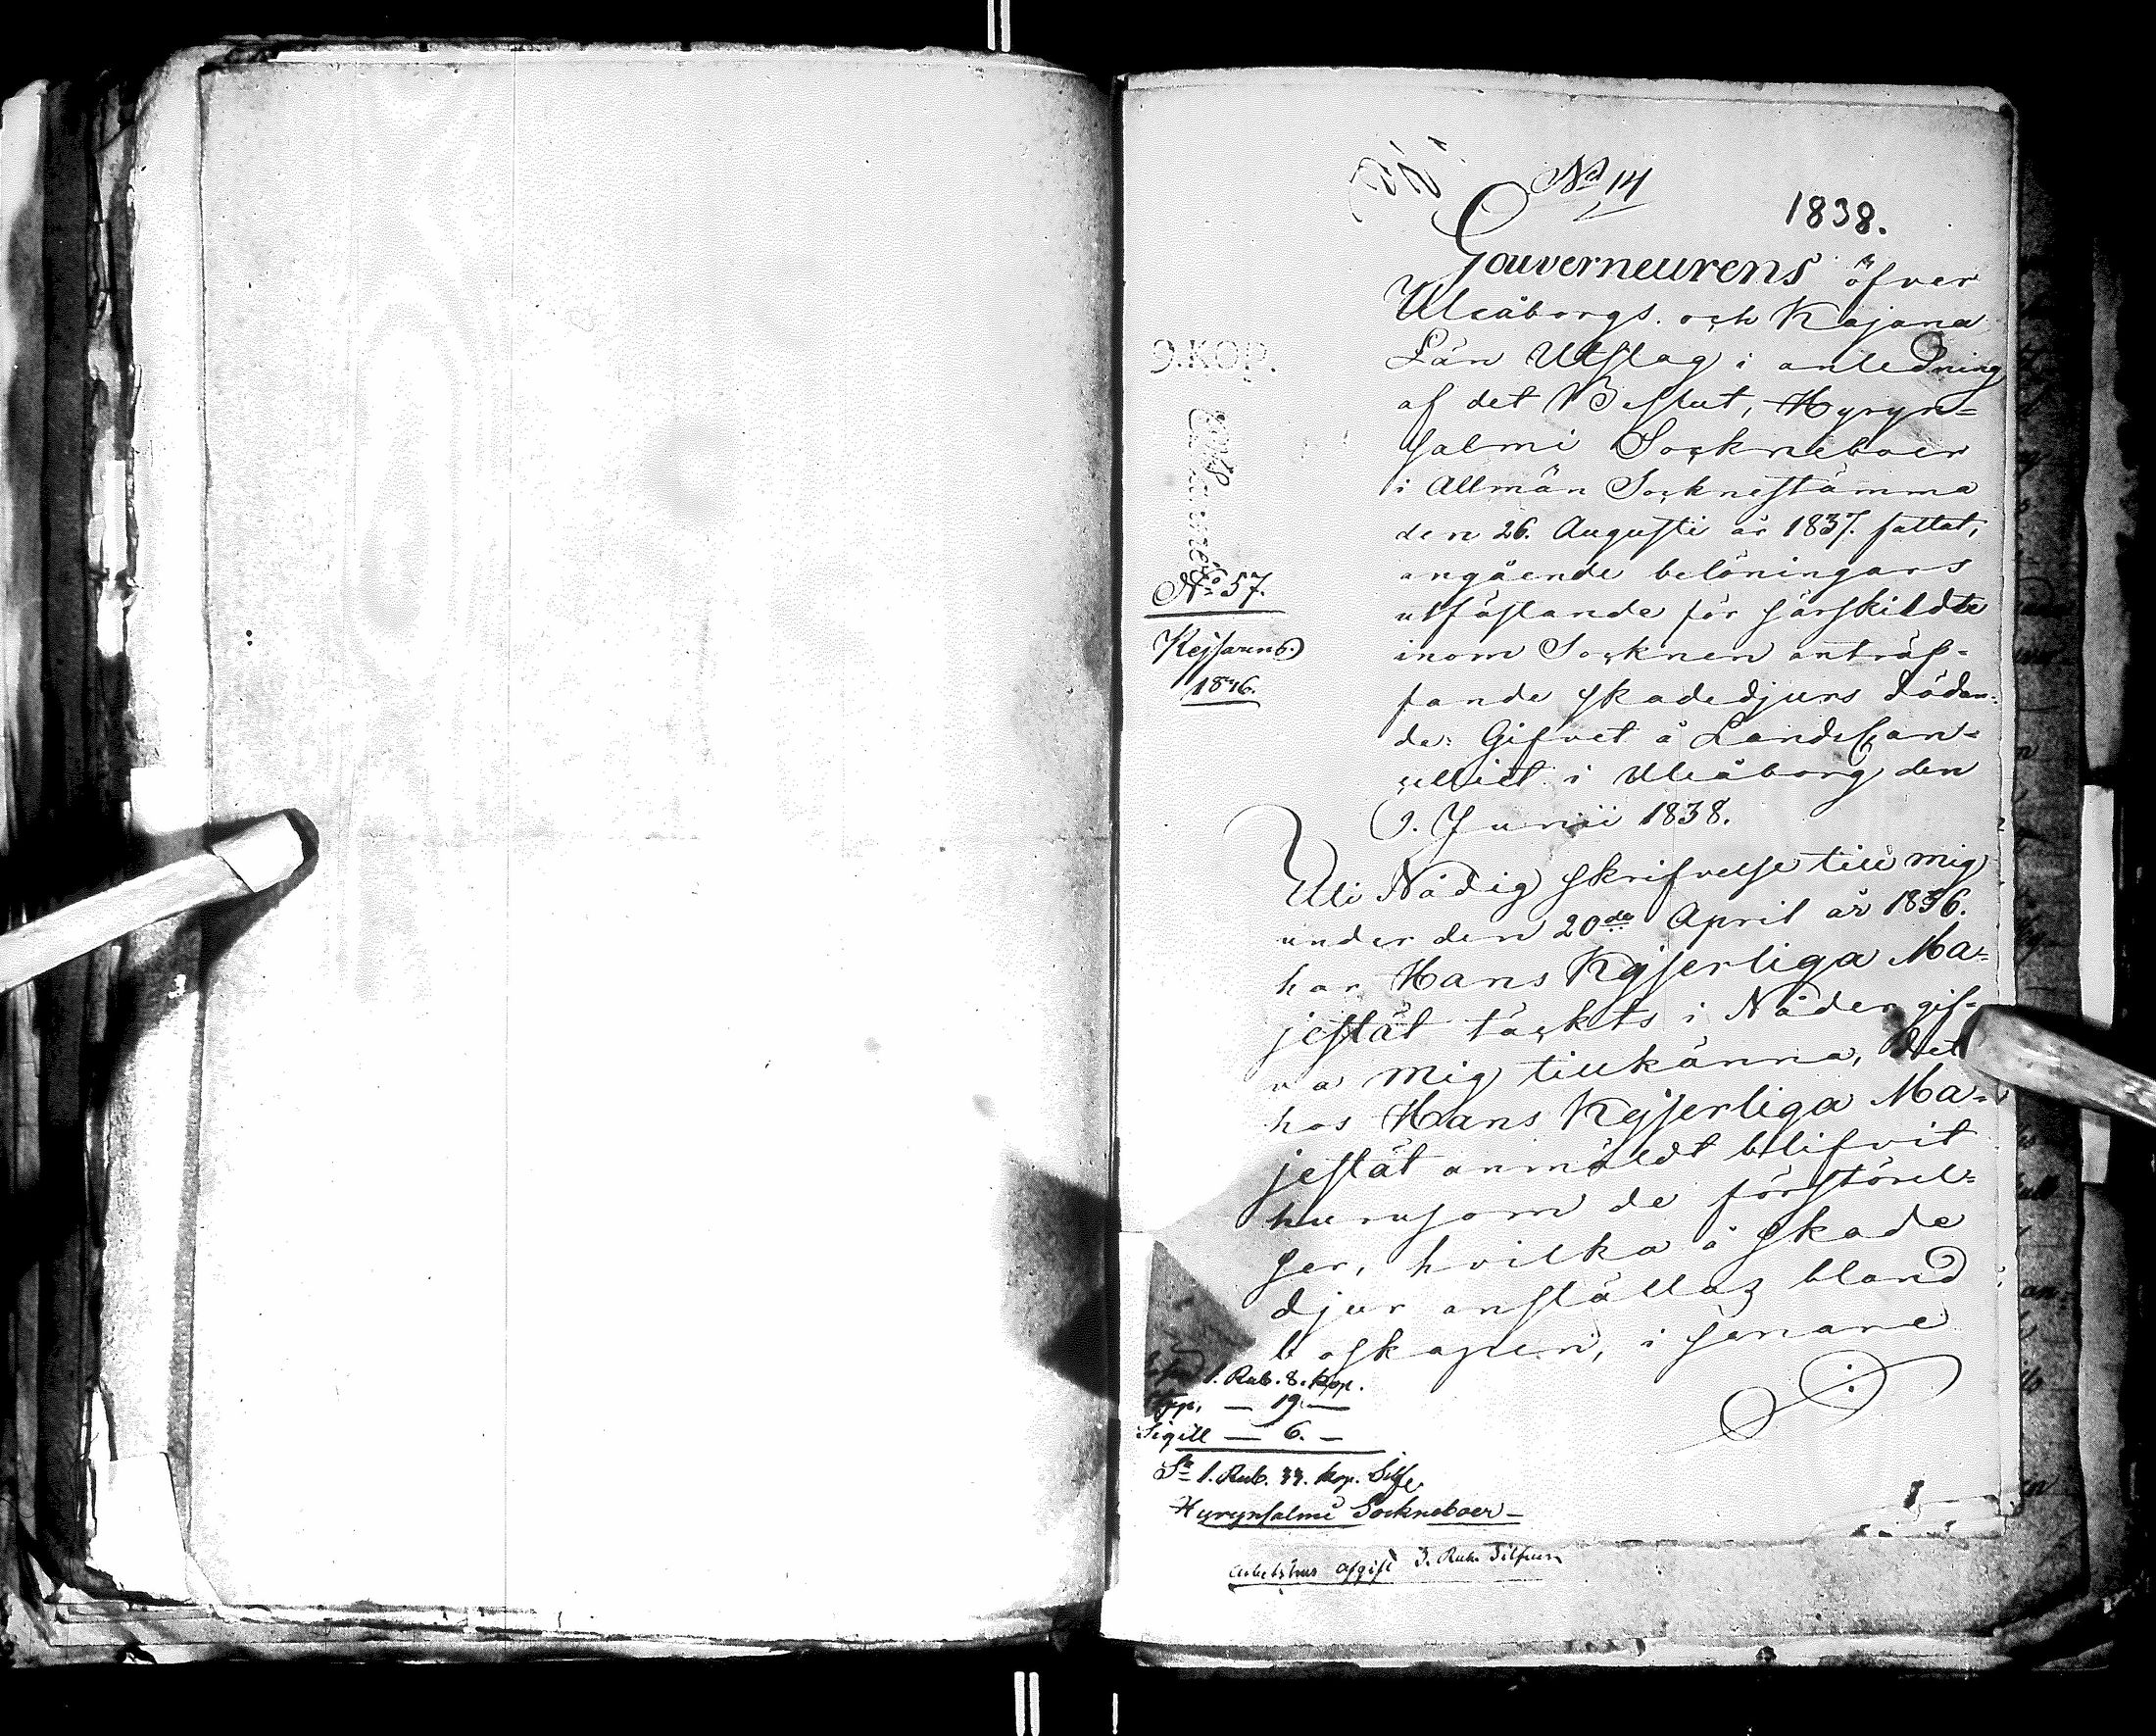 No 14
1838.
Gouverneurens öfver
Uleåborgs och Kajana
Län Utslag i anledning
af det Beslut, Hyryn=
salmi Sockneboer
i Allmän Socknestämma
den 26. Augusti år 1837. fattat,
angående belöningars
utfästande för särskildte
inom Socknen anträf=
fande skadedjurs dödan=
de: Gifvet å LandsCan=
celliet i Uleåborg den
9. Junii 1838.
9.KOP.
No 57.
Kejsaren
Uti Nådig skrifvelse till mig
under den 20de April år 1836.
har Hans Kejserliga Ma=
jestät täckts i Nåder gif=
va mig tillkänna, det
hos Hans Kejserliga Ma=
jestät anmäldt blifvit
hurusom de förstörel=
ser, hvilka å skade
djur anställas bland
boskapen, i senare
1. Rub. 8. kop.
— 19 —
Sigill — 6. —
Sa 1. Rub. 33. kop. Silfr
Hyrynsalmi Sockneboer —
Arbetshus afgift 3. Rub. Silfver